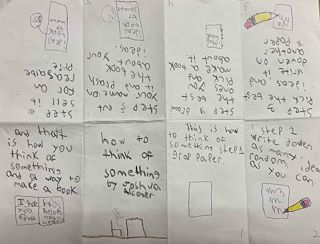 how to
think of
something
by Joshua
This is how
to think of
something step 1
grab paper.
1
step 2
write down
as many
random idea
as you can
2
Step 3
Pick the best
ideas and
write it
down on
another
paper
step 4
the best
ones you
make
a book
about it
4
Step 5 put
your name on
it and
the book
about your
ideas.
step 6
sell it
for
and that
is how you
think of
something
and a way to
make a book.